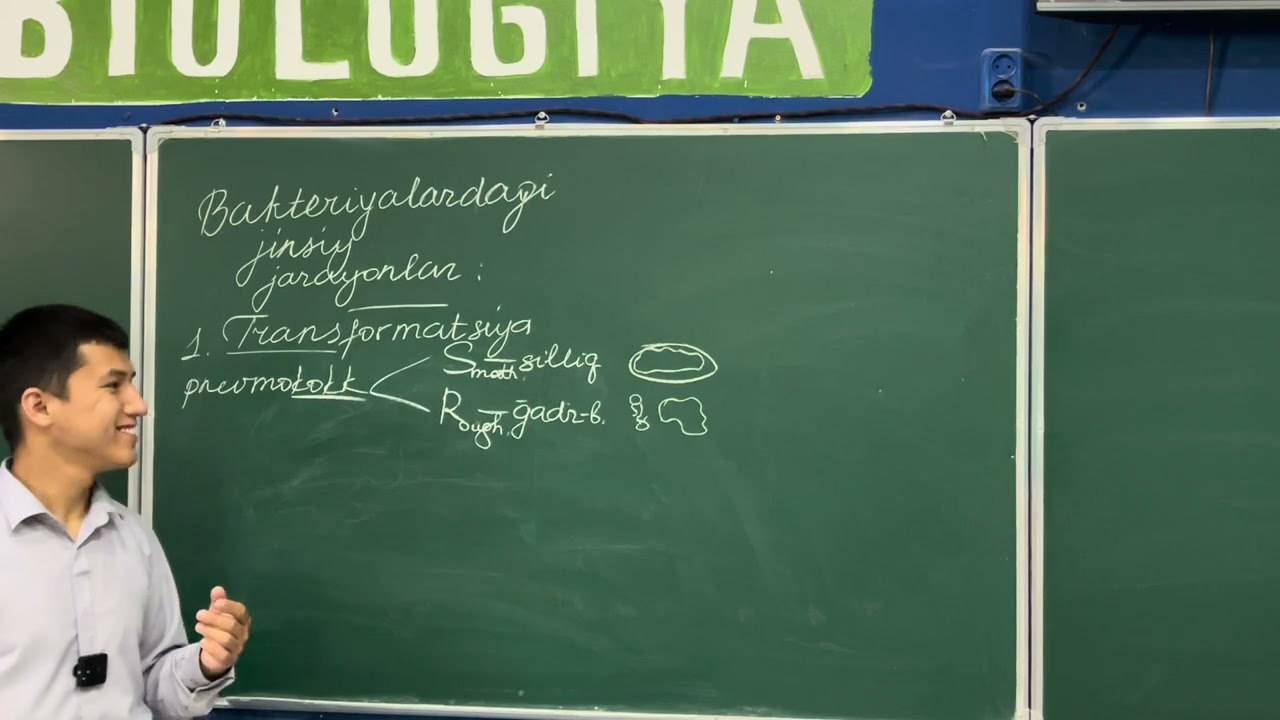 BIOLOGIYA
Bakteriyalardagi
jinsiy
jarayonlar :
1. Transformatsiya
pnevmokokk
Smooth. – silliq
Rough. – ḡadr-b.